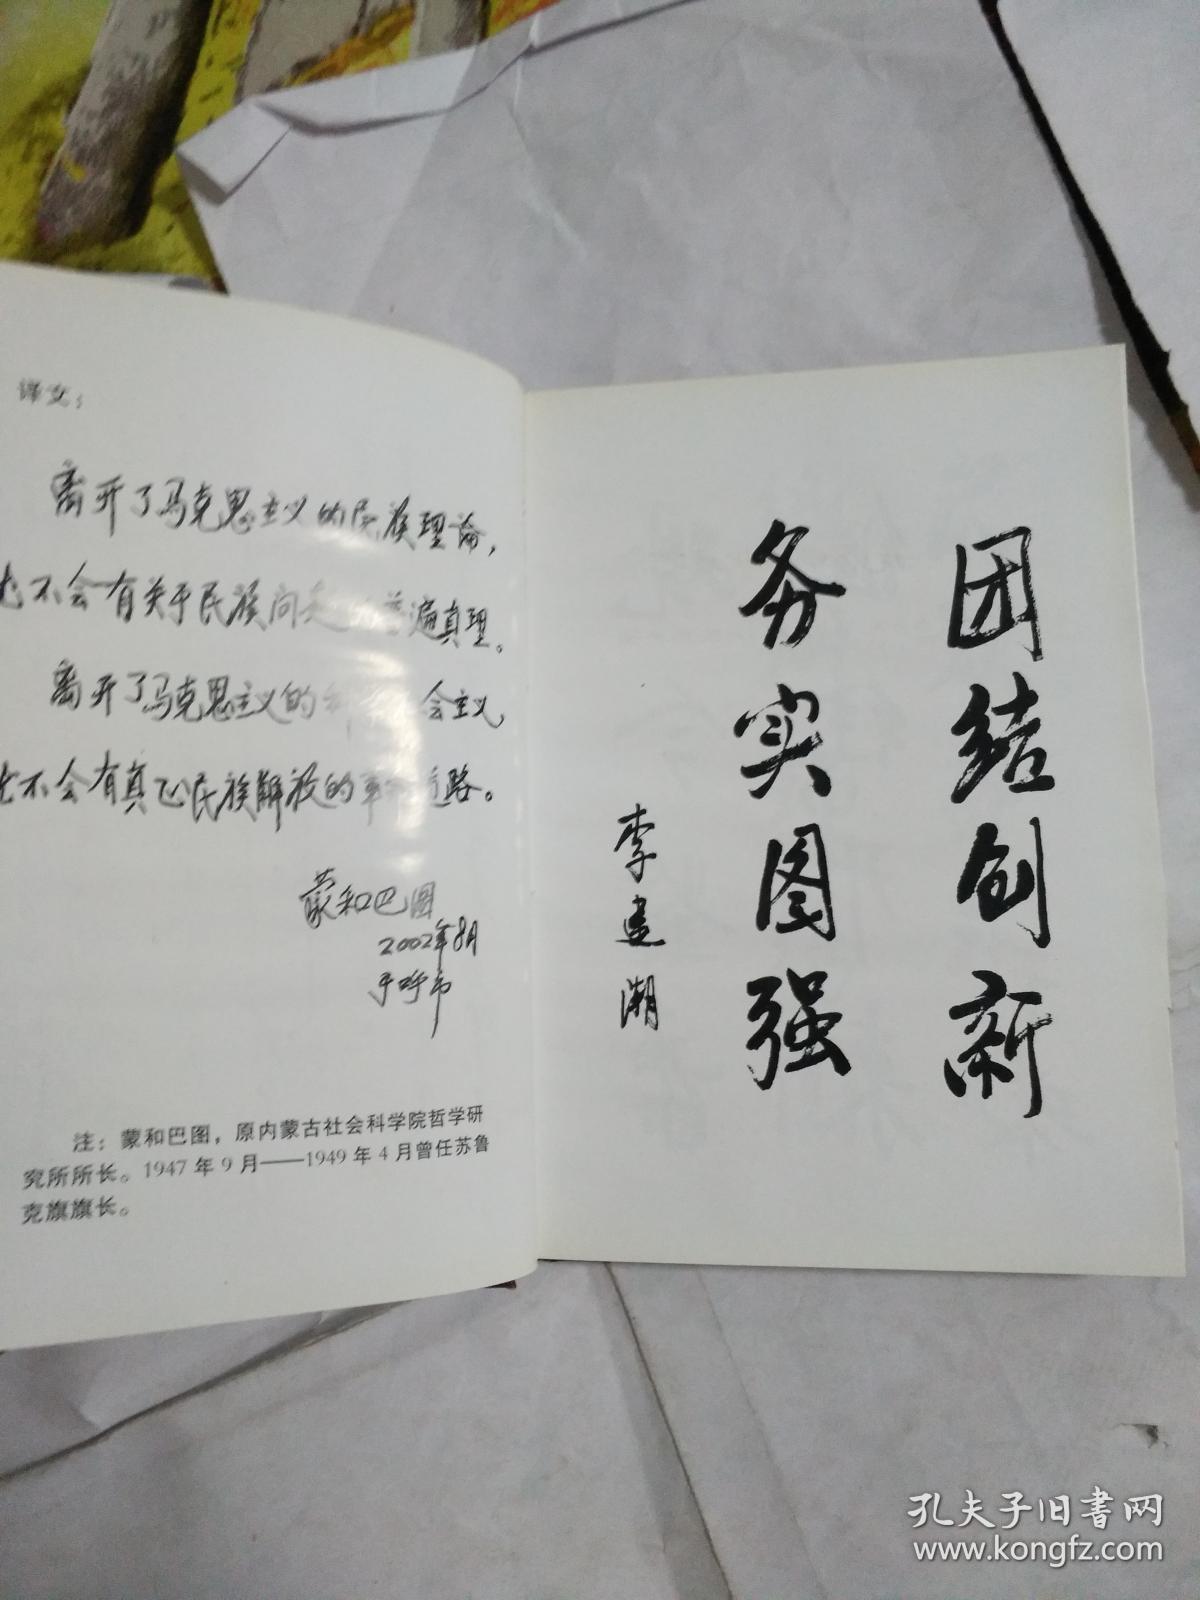 译文：
离开了马克思主义的民族理论，
也不会有关于民族问题的普遍真理。
离开了马克思主义的科学社会主义，
也不会有真正民族解放的革命道路。
蒙和巴图
2002年8月
于呼市
注：蒙和巴图，原内蒙古社会科学院哲学研
究所所长。1947年9月——1949年4月曾任苏鲁
克旗旗长。
团结创新
务实图强
李建湖
孔夫子旧书网
www.kongfz.com